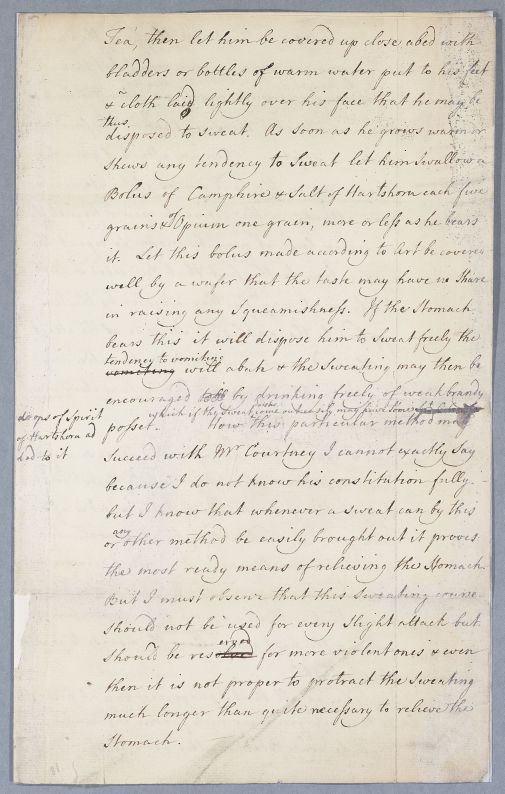 Tea, then let him be covered up close abed with
bladders or bottles of warm water put to his feet
& a cloth laid lightly over his face that he may be
thus
disposed to sweat. As soon as he grows warm or
shews any tendency to Sweat let him Swallow a
Bolus of Camphire & Salt of Hartshorn each five
grains & of Opium one grain, more or less as he bears
it. Let this bolus made according to Art be covered
well by a wafer that the taste may have no Share
in raising any Squeamishness. If the Stomach
bears this it will dispose him to Sweat freely the
tendency to vomiting
vomiting will abate & the Sweating may then be
encouraged by drinking freely of weak brandy
which if the Sweat come out easily may have some
drops of Spirit
of Hartshorn ad
ded to it
posset. How this particular method may
Succeed with Mr Courtney I cannot exactly Say
because I do not know his constitution fully.
but I know that whenever a Sweat can by this
any
or other method be easily brought out it proves
the most ready means of relieving the Stomach.
But I must observe that this Sweating course
should not be used for every slight attack but
erved
should be resolve for more violent ones & even
then it is not proper to protract the Sweating
much longer than quite necessary to relieve the
Stomach.